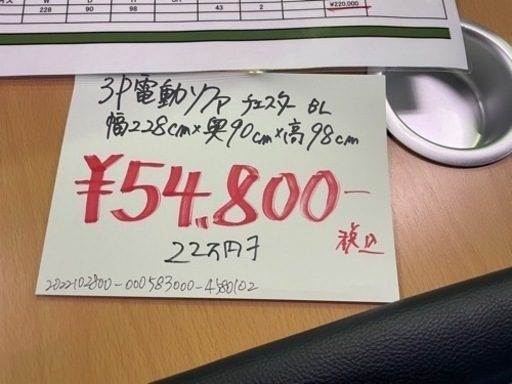 228 90 98 43 2 ¥220,000
3P電動ソファ チェスター BL
幅228cm×奥90cm×高98cm
¥54,800-
税込
22万円子
2022102800-000583000-4580102